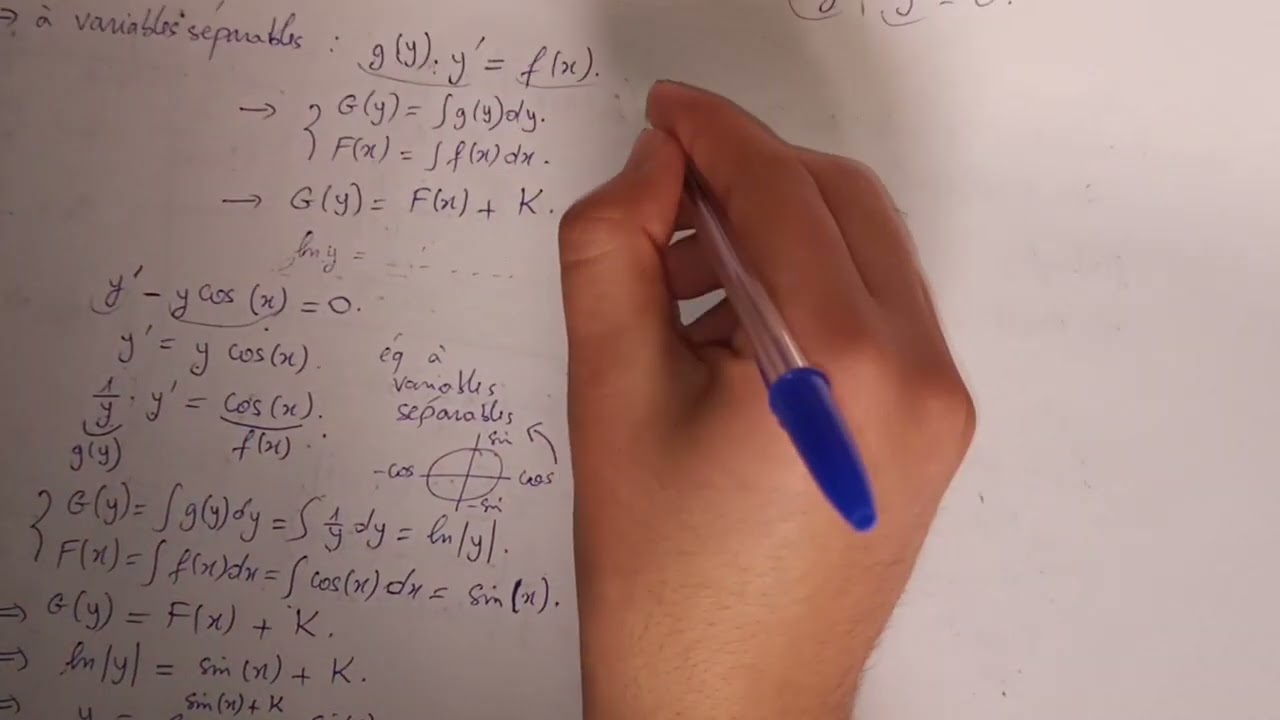 ⇒ à variables séparables : g(y). y' = f(x).
→ { G(y) = ∫g(y)dy.
F(x) = ∫f(x)dx.
→ G(y) = F(x) + K.
ln y =
y' - y cos(x) = 0.
y' = y cos(x).
éq à
variables
séparables
1/y . y' = cos(x).
g(y) f(x)
sin
-cos cos
-sin
{ G(y) = ∫g(y)dy = ∫ 1/y dy = ln|y|.
F(x) = ∫f(x)dx = ∫cos(x)dx = sin(x).
⇒ G(y) = F(x) + K.
⇒ ln|y| = sin(x) + K.
⇒ sin(x) + K